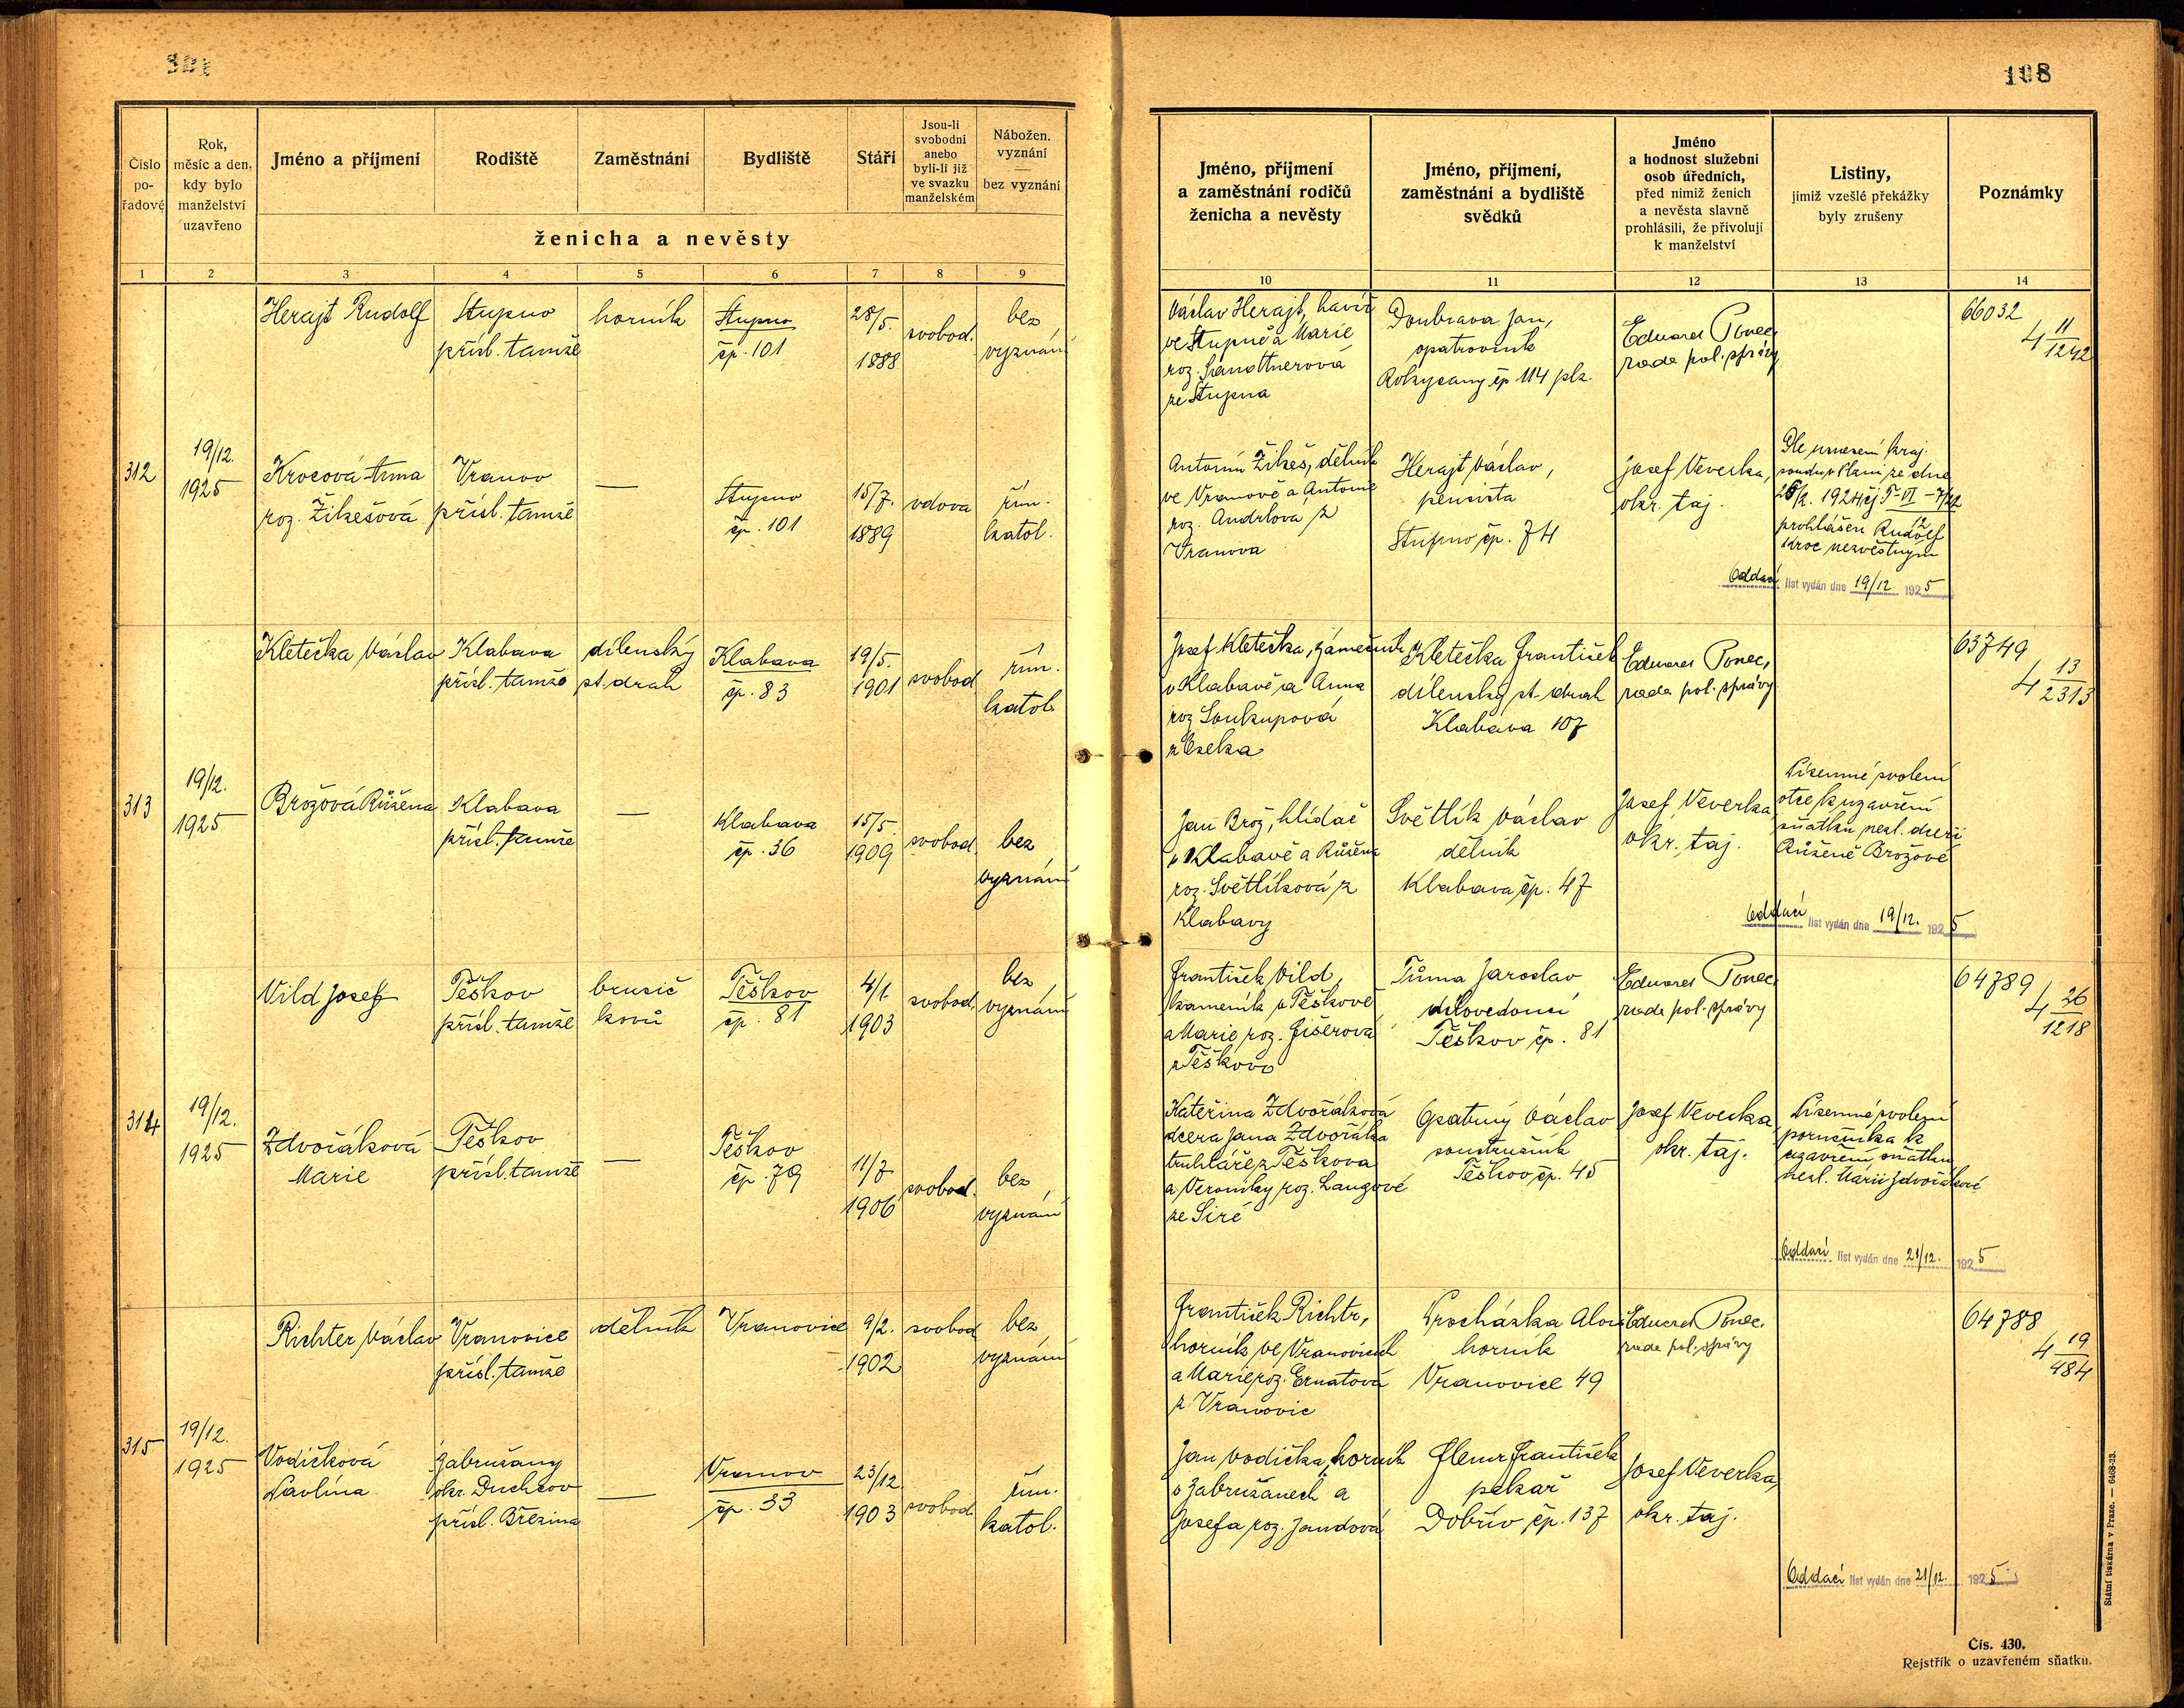 108
Číslo
po-
řadové
Rok,
měsíc a den,
kdy bylo
manželství
uzavřeno
Jméno a příjmení
Rodiště
Zaměstnání
Bydliště
Stáří
Jsou-li
svobodni
anebo
byli-li již
ve svazku
manželském
Nábožen.
vyznání
bez vyznání
ženicha a nevěsty
Jméno, příjmení
a zaměstnání rodičů
ženicha a nevěsty
Jméno, příjmení,
zaměstnání a bydliště
svědků
Jméno
a hodnost služební
osob úředních,
před nimiž ženich
a nevěsta slavně
prohlásili, že přivolují
k manželství
Listiny,
jimiž vzešlé překážky
byly zrušeny
Poznámky
1 2 3 4 5 6 7 8 9
10 11 12 13 14
312
19/12.
1925
Herajt Rudolf
Stupno
přísl. tamže
horník
Stupno
čp. 101
28/5.
1888
svobod.
bez
vyznání
Václav Herajt, havíř
ve Stupně a Marie
roz.
ze Stupna
Doubrava Jan,
opatrovník
Rokycany čp 114 plz.
Eduard Ponec,
rada pol. správy
66032
4 11/1242
Krocová Anna
roz. Žikešová
Vranov
přísl. tamže
—
Stupno
čp. 101
15/7.
1889
vdova
řím.
katol.
Antonín Žikeš, dělník
ve Vranově a Antonie
roz. Andrlová z
Vranova
Herajt Václav,
pensista
Stupno čp. 74
Josef Veverka,
okr. taj.
Dle usnesení kraj.
soudu v Plzni ze dne
prohlášen Rudolf
Kroc nezvěstným
Oddací list vydán dne 19/12 1925
313
19/12.
1925
Kletečka Václav
Klabava
přísl. tamže
dílenský
st. drah
Klabava
čp. 83
19/5.
1901
svobod
řím.
katol.
Josef Kletečka, zámečník
v Klabavě a Anna
roz Soukupová
z Oseka
Kletečka František
dílenský st. drah
Klabava 107
Eduard Ponec,
rada pol. správy
63749
4 13/2313
Brožová Růžena
Klabava
přísl. tamže
—
Klabava
čp. 36
15/5.
1909
svobod.
bez
vyznání
Jan Brož, hlídač
v Klabavě a Růžena
roz. Světlíková z
Klabavy
Světlík Václav
dělník
Klabava čp. 47
Josef Veverka
okr. taj.
Písemné svolení
otce k uzavření
sňatku nezl. dceři
Růženě Brožové
Oddací list vydán dne 19/12. 1925
314
19/12.
1925
Vild Josef
Těškov
přísl. tamže
brusič
kovů
Těškov
čp. 81
4/1.
1903
svobod.
bez
vyznání
František Vild,
kameník v Těškově
a Marie roz. Fišerová
z Těškova
Tůma Jaroslav
dílovedoucí
Těškov čp. 81
Eduard Ponec,
rada pol. správy
64789
4 26/1218
Zdvořáková
Marie
Těškov
přísl. tamže
—
Těškov
čp. 79
11/7
1906
svobod.
bez
vyznání
Kateřina Zdvořáková
dcera Jana Zdvořáka
truhláře z Těškova
a Veroniky roz. Langové
ze Siré
Opatrný Václav
soustružník
Těškov čp. 45
Josef Veverka
okr. taj.
Písemné svolení
poručníka k
uzavření sňatku
nezl. Marii Zdvořákové
Oddací list vydán dne 21/12. 1925
315
19/12.
1925
Richter Václav
Vranovice
přísl. tamže
dělník
Vranovice
9/2.
1902
svobod
bez
vyznání
František Richtr,
horník ve Vranovicích
a Marie roz. Ernatová
z Vranovic
Procházka Alois
horník
Vranovice 49
Eduard Ponec,
rada pol. správy
64788
4 19/484
Vodičková
Pavlína
Zabrušany
okr. Duchcov
přísl. Březina
—
Vranov
čp. 33
23/12.
1903
svobod
řím.
katol.
Jan Vodička, horník
v Zabrušanech a
Josefa roz. Jandová
František
pekař
Dobřív čp. 137
Josef Veverka,
okr. taj.
Oddací list vydán dne 21/12. 1925
Státní tiskárna v Praze. — 6468-23.
Čís. 430.
Rejstřík o uzavřeném sňatku.